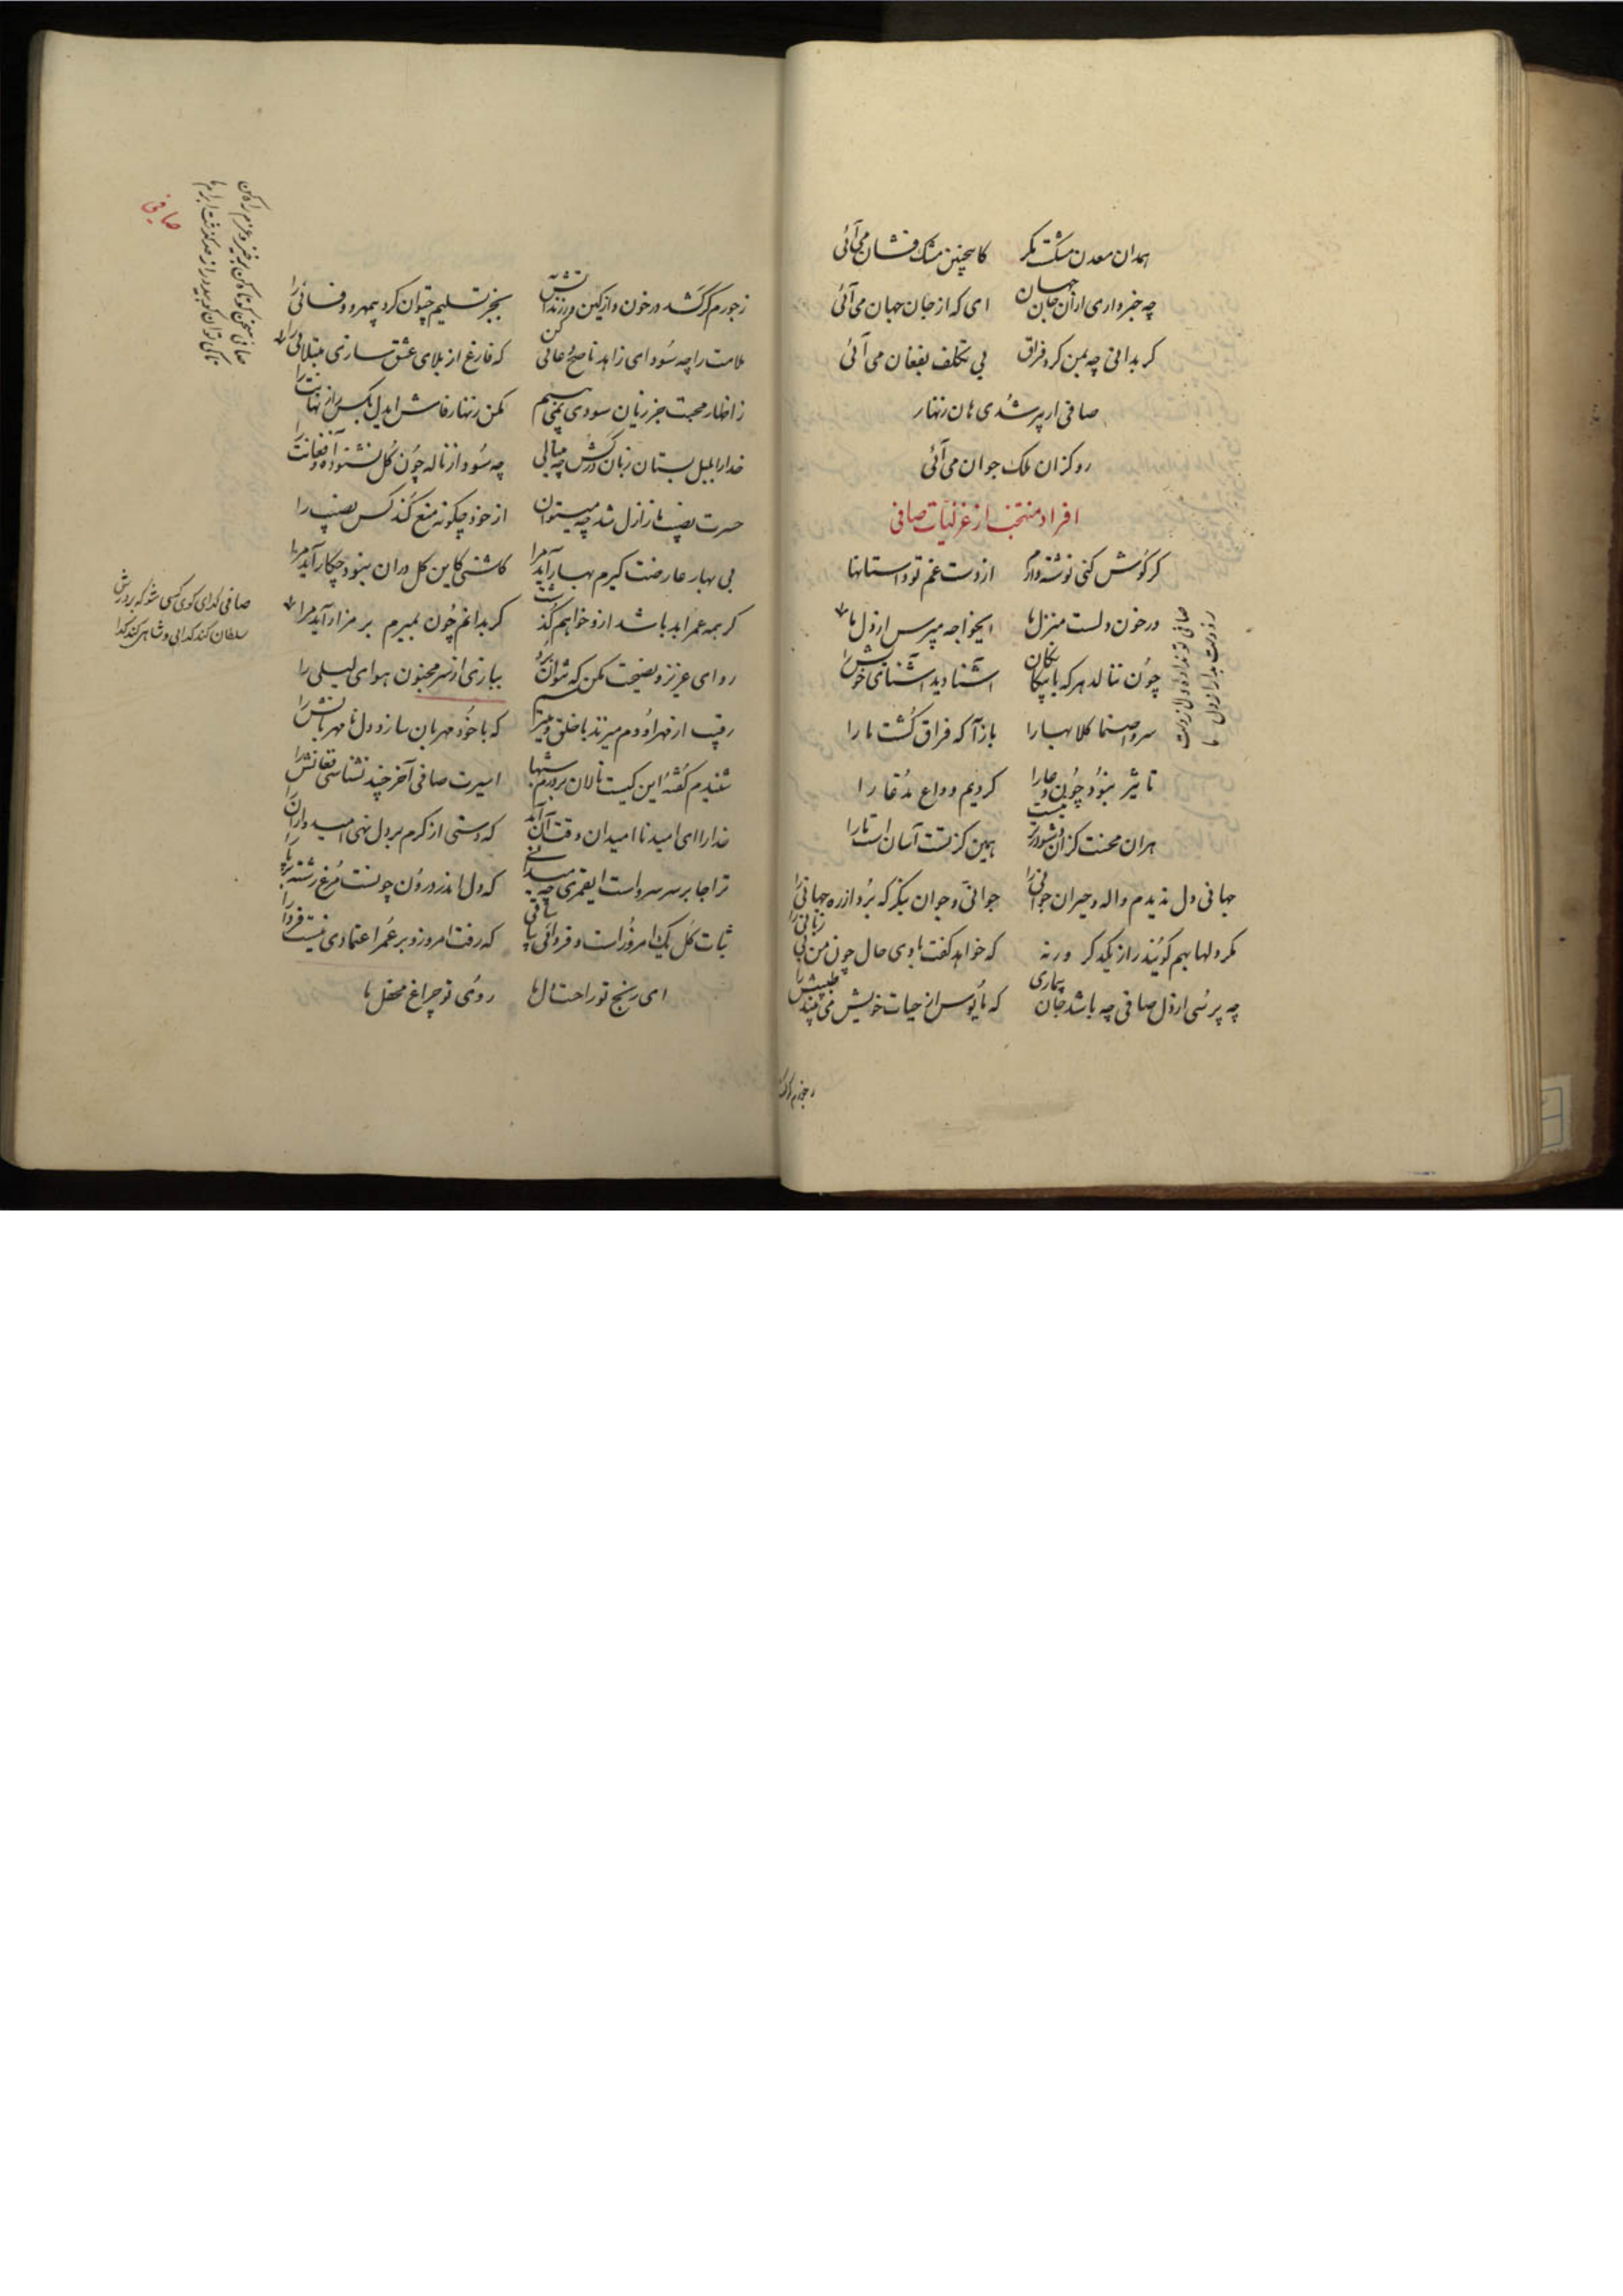 همدان معدن مشکست مگر کاینچنین مشک فشان می‌آئی
چه خبر داری از آن جان جهان ای که از جان جهان می‌آئی
گر بدانی چه بمن کرد فراق بی تکلف بفغان می‌آئی
صافی ار پیر شدی هان زنهار
رو کزان ملک جوان می‌آئی
افراد منتخب از غزلیات صافی
گر گوش کنی نوشته دارم از دست غم تو داستانها
در خون دلست منزل ما ایخواجه مپرس از دل ما
چون ننالد هر که با بیگانگان آشنا دید آشنای خویش را
سروا صنما کلابهارا بازآ که فراق کشت ما را
تاثیر نبود چون دعا را کردیم وداع مدعا را
هران محنت کزان دشوارتر نیست همین کز تست آسان است ما را
جهانی دل ندیدم واله و حیران جوانی را جوانی و جوان بنگر که برد از ره جهانی را
مگر دلها بهم گویند راز یکدگر ورنه که خواهد گفت با وی حال چون من بی زبانی را
چه پرسی از دل صافی چه باشد جان بیماری که مأیوس از حیات خویش می‌بیند طبیبش را
صافی تو نداده دل از دست
زجورم گر کشد در خون و از کین ورزند آتش بجز تسلیم چتوان کرد بیمهر و وفائی را
ملامت را چه سود ای زاهد ناصح دعائی کن که فارغ از بلای عشق سازی مبتلائی را
ز اظهار محبت جز زیان سودی نمی‌بینم مکن زنهار فاش ایدل بکس راز نهانت را
خدا را بلبل بستان زبان درکش چه مینالی چه سود از ناله چون گل نشنود آه و فغانت را
حسرت نصیب ما ز ازل شد چه میتوان از خود چگونه منع کند کس نصیب را
بی بهار عارضت گیرم بهار آید مرا کاشنی کاین گل در آن نبود چکار آید مرا
گر همه عمر ابد باشد ازو خواهم گذشت گر بدانم چون بمیرم بر مزار آید مرا
رو ای عزیز و نصیحت مکن که نتوان برد ببازی از سر مجنون هوای لیلی را
رقیب از مهر او دم میزند با خلق و میترسم که با خود مهربان سازد دل نامهربانش را
شنیدم گفتهٔ این کیست نالان بر درم شبها اسیرت صافی آخر چند نشناسی فغانش را
خدا را ای امید ناامیدان وقت آن آمد که دستی از کرم بر دل نهی امیدواران را
ترا جا بر سر سرو است ایقمری چه میدانی که دل اندر درون چونست مرغ رشته بر پا را
ثبات گل یک امروز است و فردائی نیابی که رفت امروز و بر عمر اعتمادی نیست فردا را
ای رنج تو راحت دلها روی تو چراغ محفل ما
صافی گدای کوی کسی شو که بر درش
سلطان کند گدایی و شاهی کند گدا
صافی